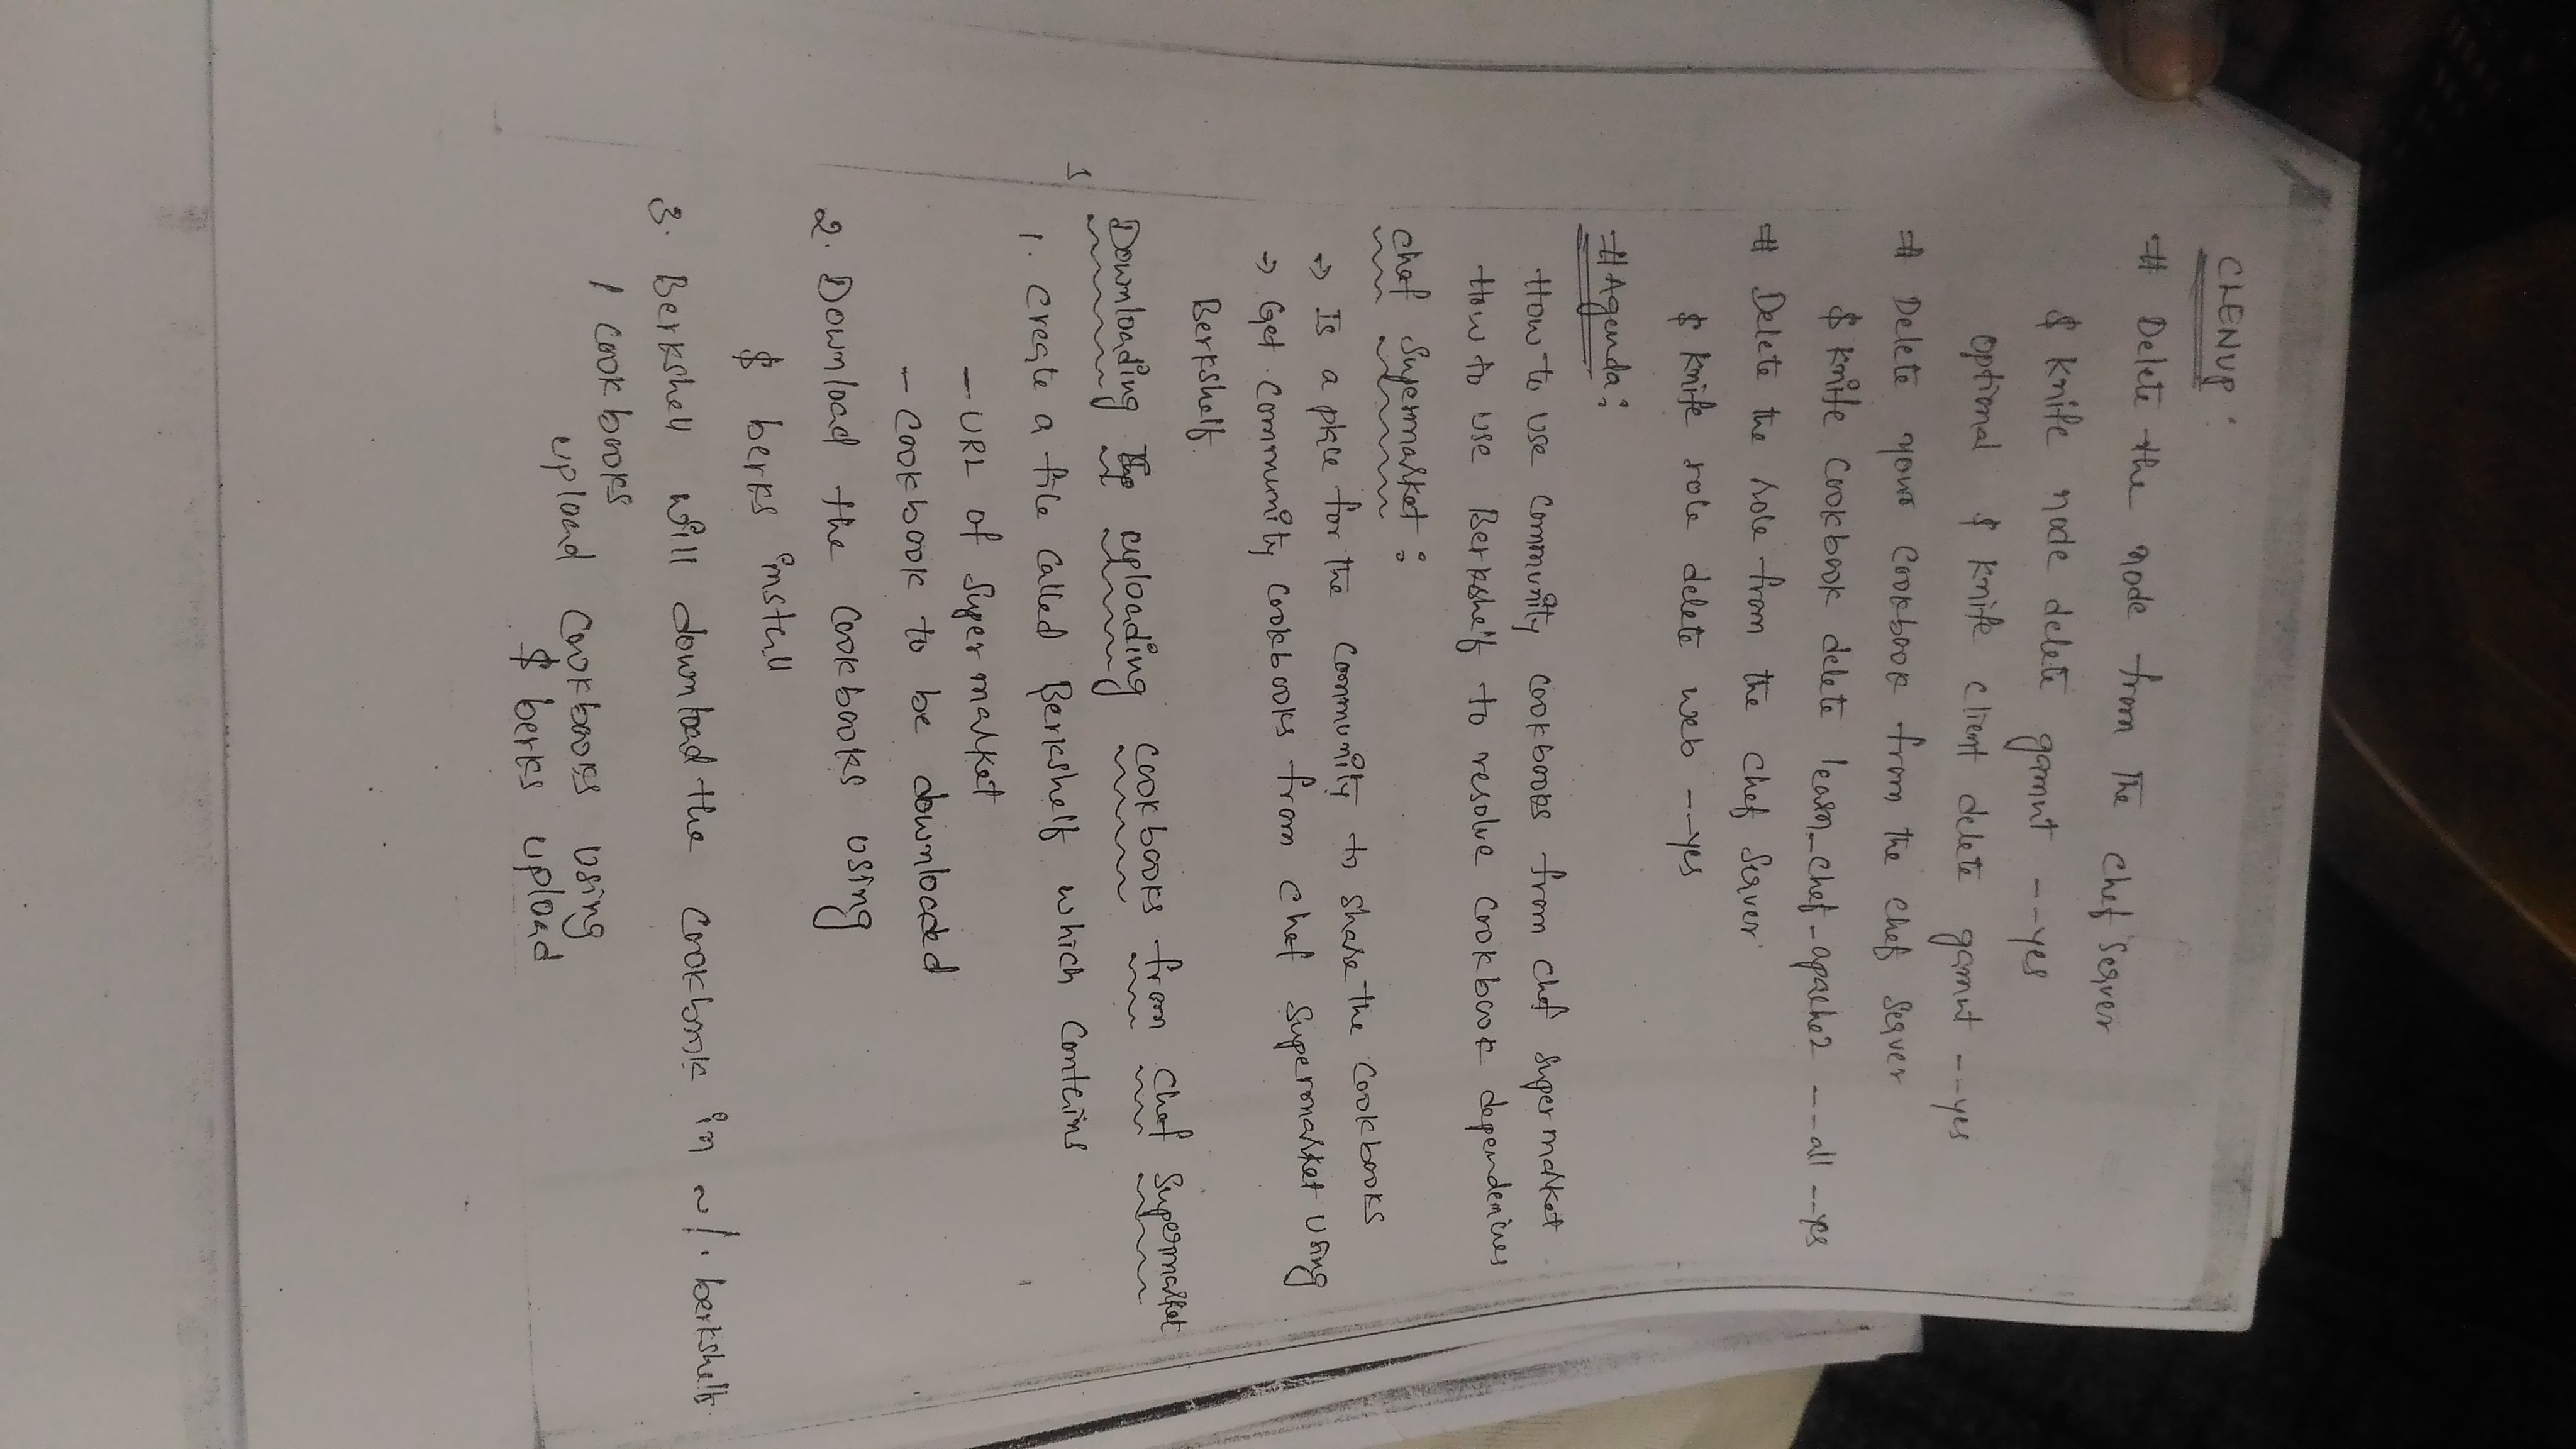 CLENUP:
# Delete the node from the chef server
$ knife node delete gamut --yes
optional $ knife client delete gamut --yes
# Delete your cookbook from the chef server
$ knife cookbook delete learn_chef_apache2 --all --yes
# Delete the role from the chef server
$ knife role delete web --yes
# Agenda:
How to use community cookbooks from chef supermarket.
How to use Berkshelf to resolve cookbook dependenices
chef Supermarket:
→ Is a place for the community to share the cookbooks
→ Get community cookbooks from chef supermarket using
Berkshelf.
Downloading uploading cookbooks from chef Supermarket
1. create a file called Berkshelf which contains
- URL of Supermarket
- cookbook to be downloaded
2. Download the cookbooks using
$ berks install
3. Berkshelf will download the cookbook in ~/.berkshelf
/cookbooks
upload cookbooks using
$ berks upload